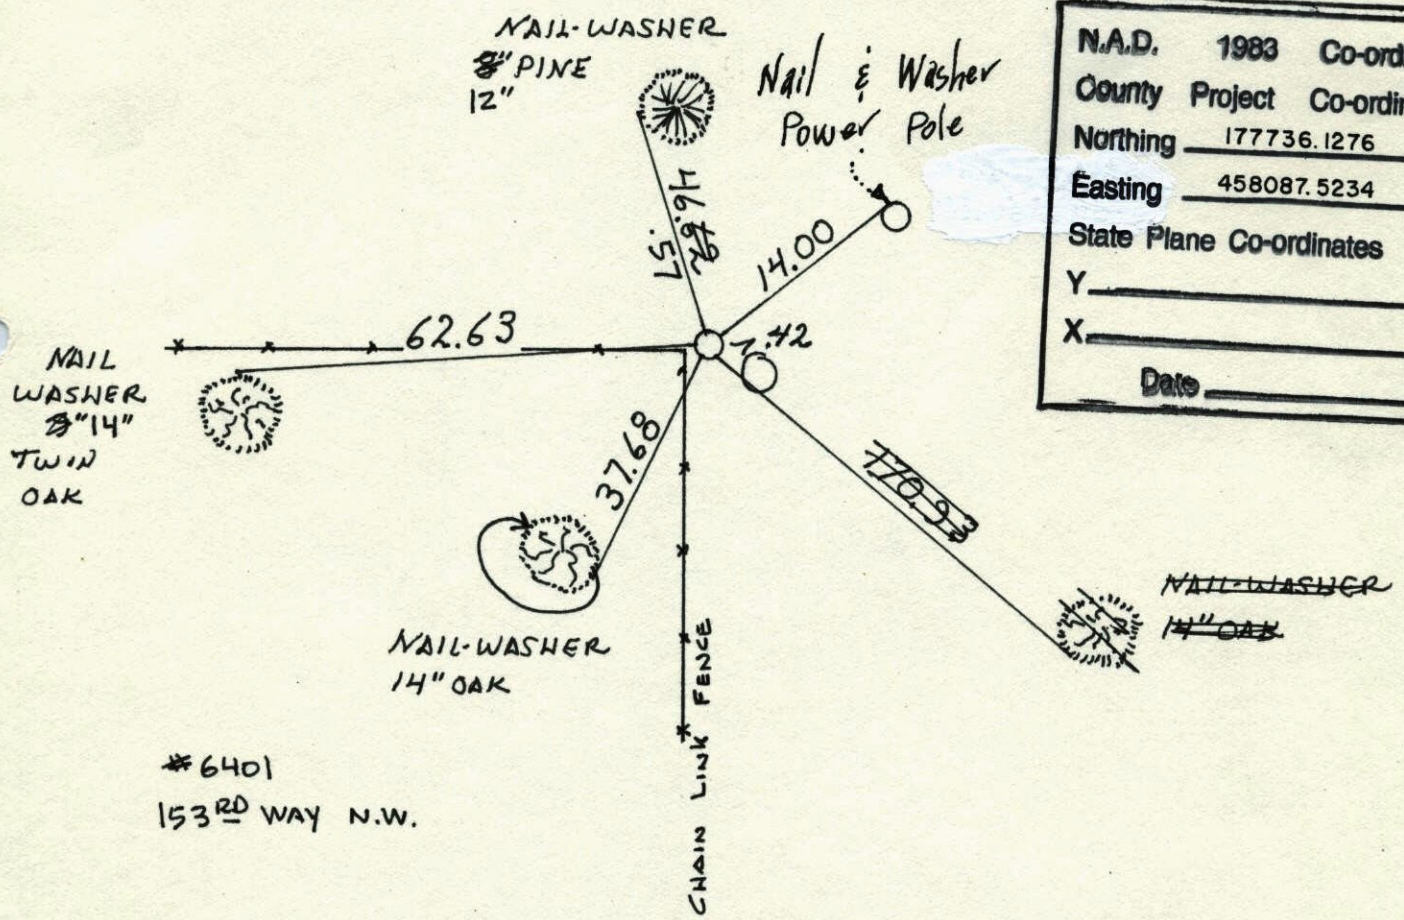 NAIL-WASHER
8" PINE
12"
Nail & Washer
Power Pole
N.A.D. 1983 Co-ord
County Project Co-ordin
Northing 177736.1276
Easting 458087.5234
State Plane Co-ordinates
Y
X
Date
46.82
.57
14.00
62.63
.42
NAIL
WASHER
8" 14"
TWIN
OAK
37.68
170.93
NAIL-WASHER
14" OAK
NAIL-WASHER
14" OAK
CHAIN LINK FENCE
#6401
153RD WAY N.W.